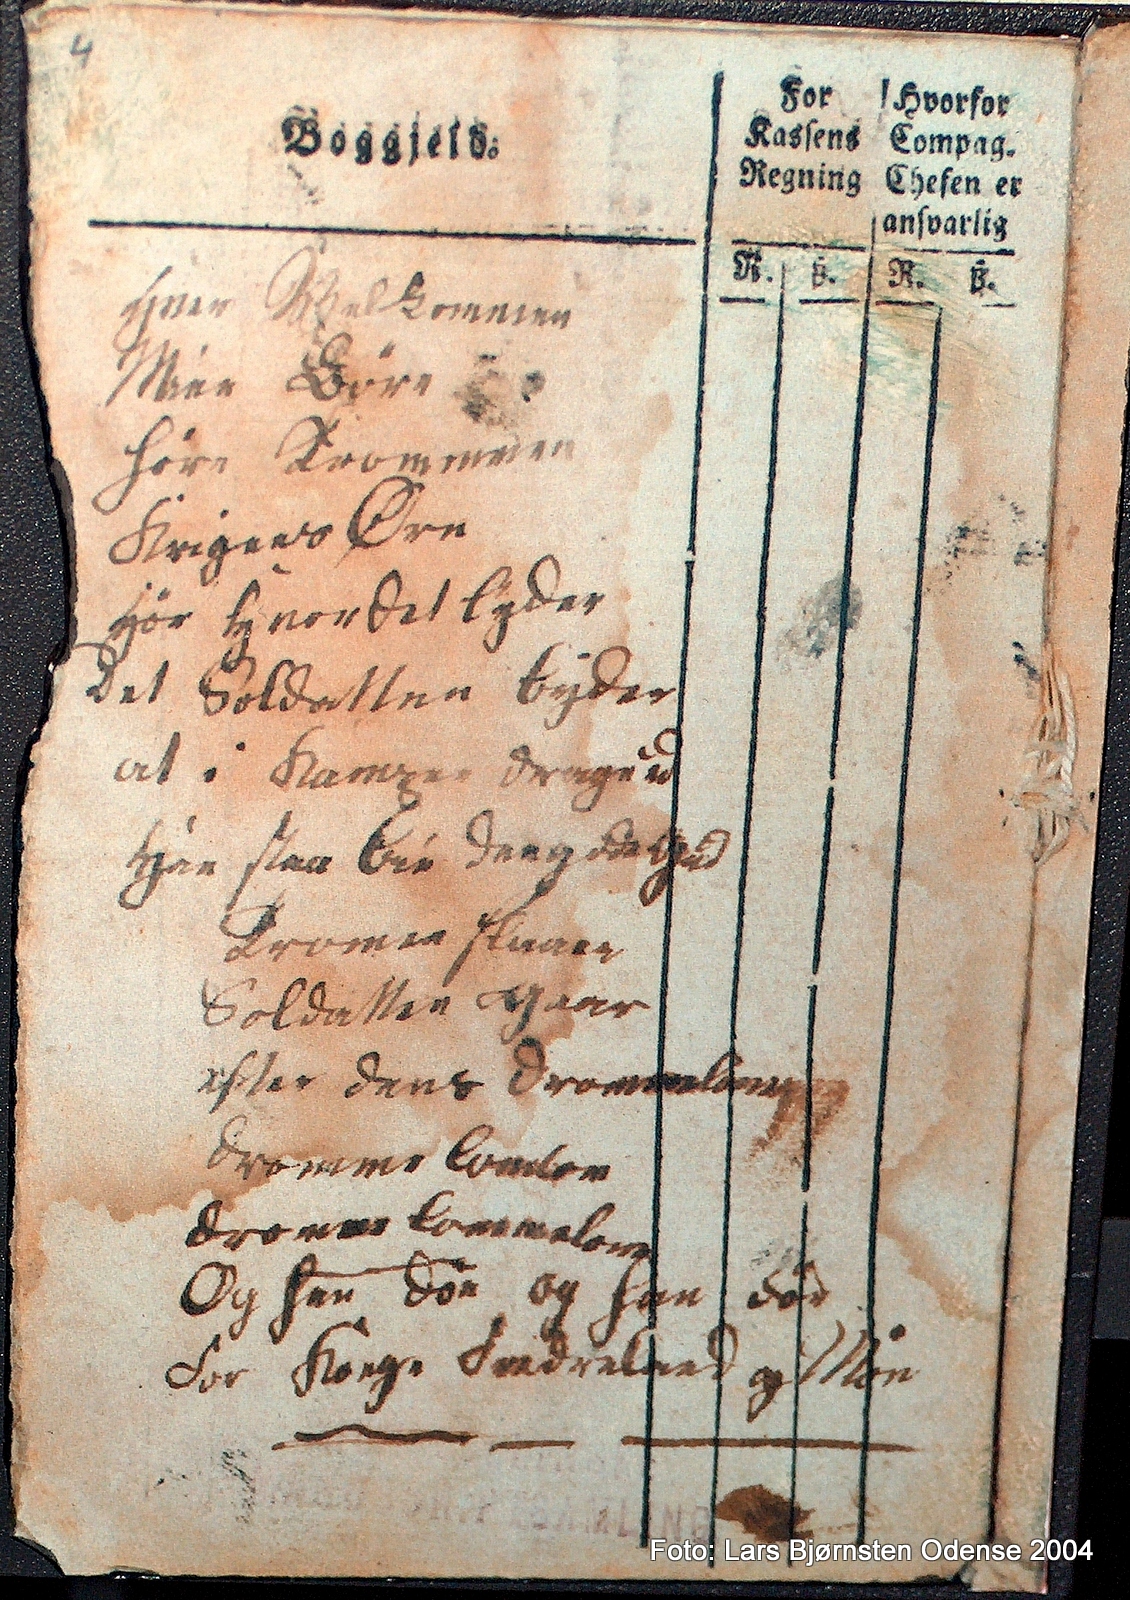 4
Boggjeld:
For
Kassens
Regning
Hvorfor
Compag.
Chefen er
ansvarlig
R. ß. R. ß.
Hver Velkommen
Mine Börn
höre Trommmen
Krigens Ørn
hör hvor det lyder
Det Soldatten byder
at i Kampen drage ud
Han staa bie
Tromen slaaer
Soldatten gaar
efter dens
dromme
dromme
Og han döe og han döe
for Konge Fædreland og Möe
Foto: Lars Bjørnsten Odense 2004